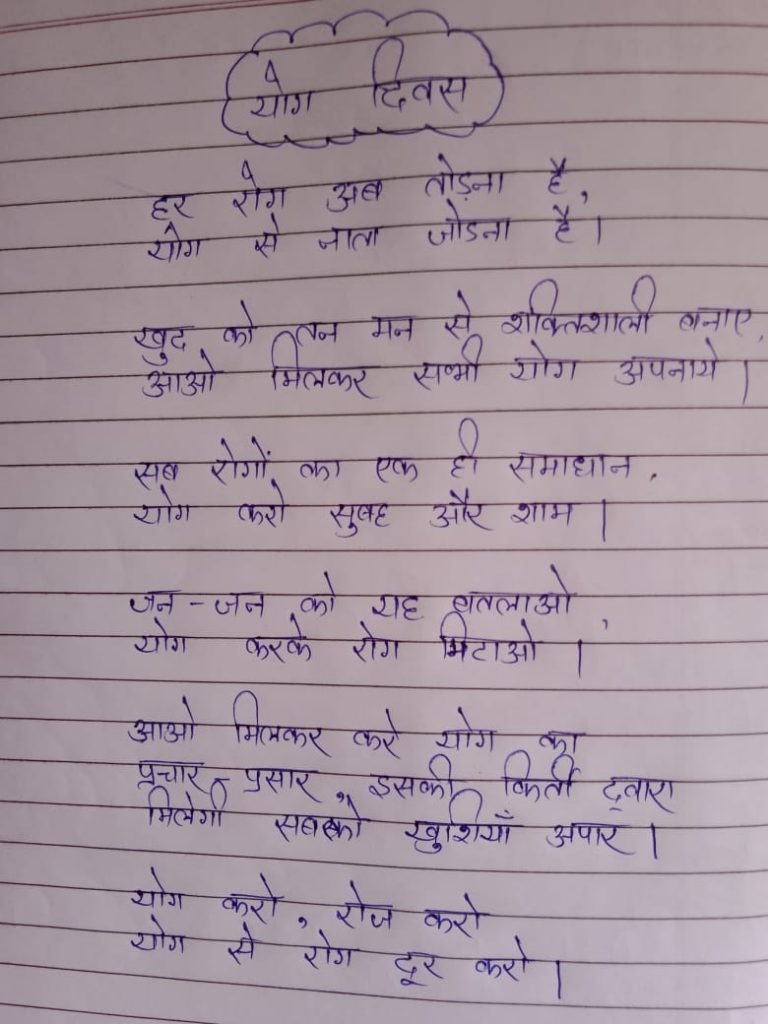 योग दिवस
हर रोग अब तोड़ना है,
योग से नाता जोडना है।
खुद को तन मन से शक्तिशाली बनाए,
आओ मिलकर सभी योग अपनाये।
सब रोगों का एक ही समाधान,
योग करो सुबह और शाम।
जन-जन को यह बतलाओ,
योग करके रोग मिटाओ।
आओ मिलकर करे योग का
प्रचार-प्रसार, इसकी किर्ती द्वारा
मिलेगी सबको खुशियाँ अपार।
योग करो, रोज करो
योग से रोग दूर करो।